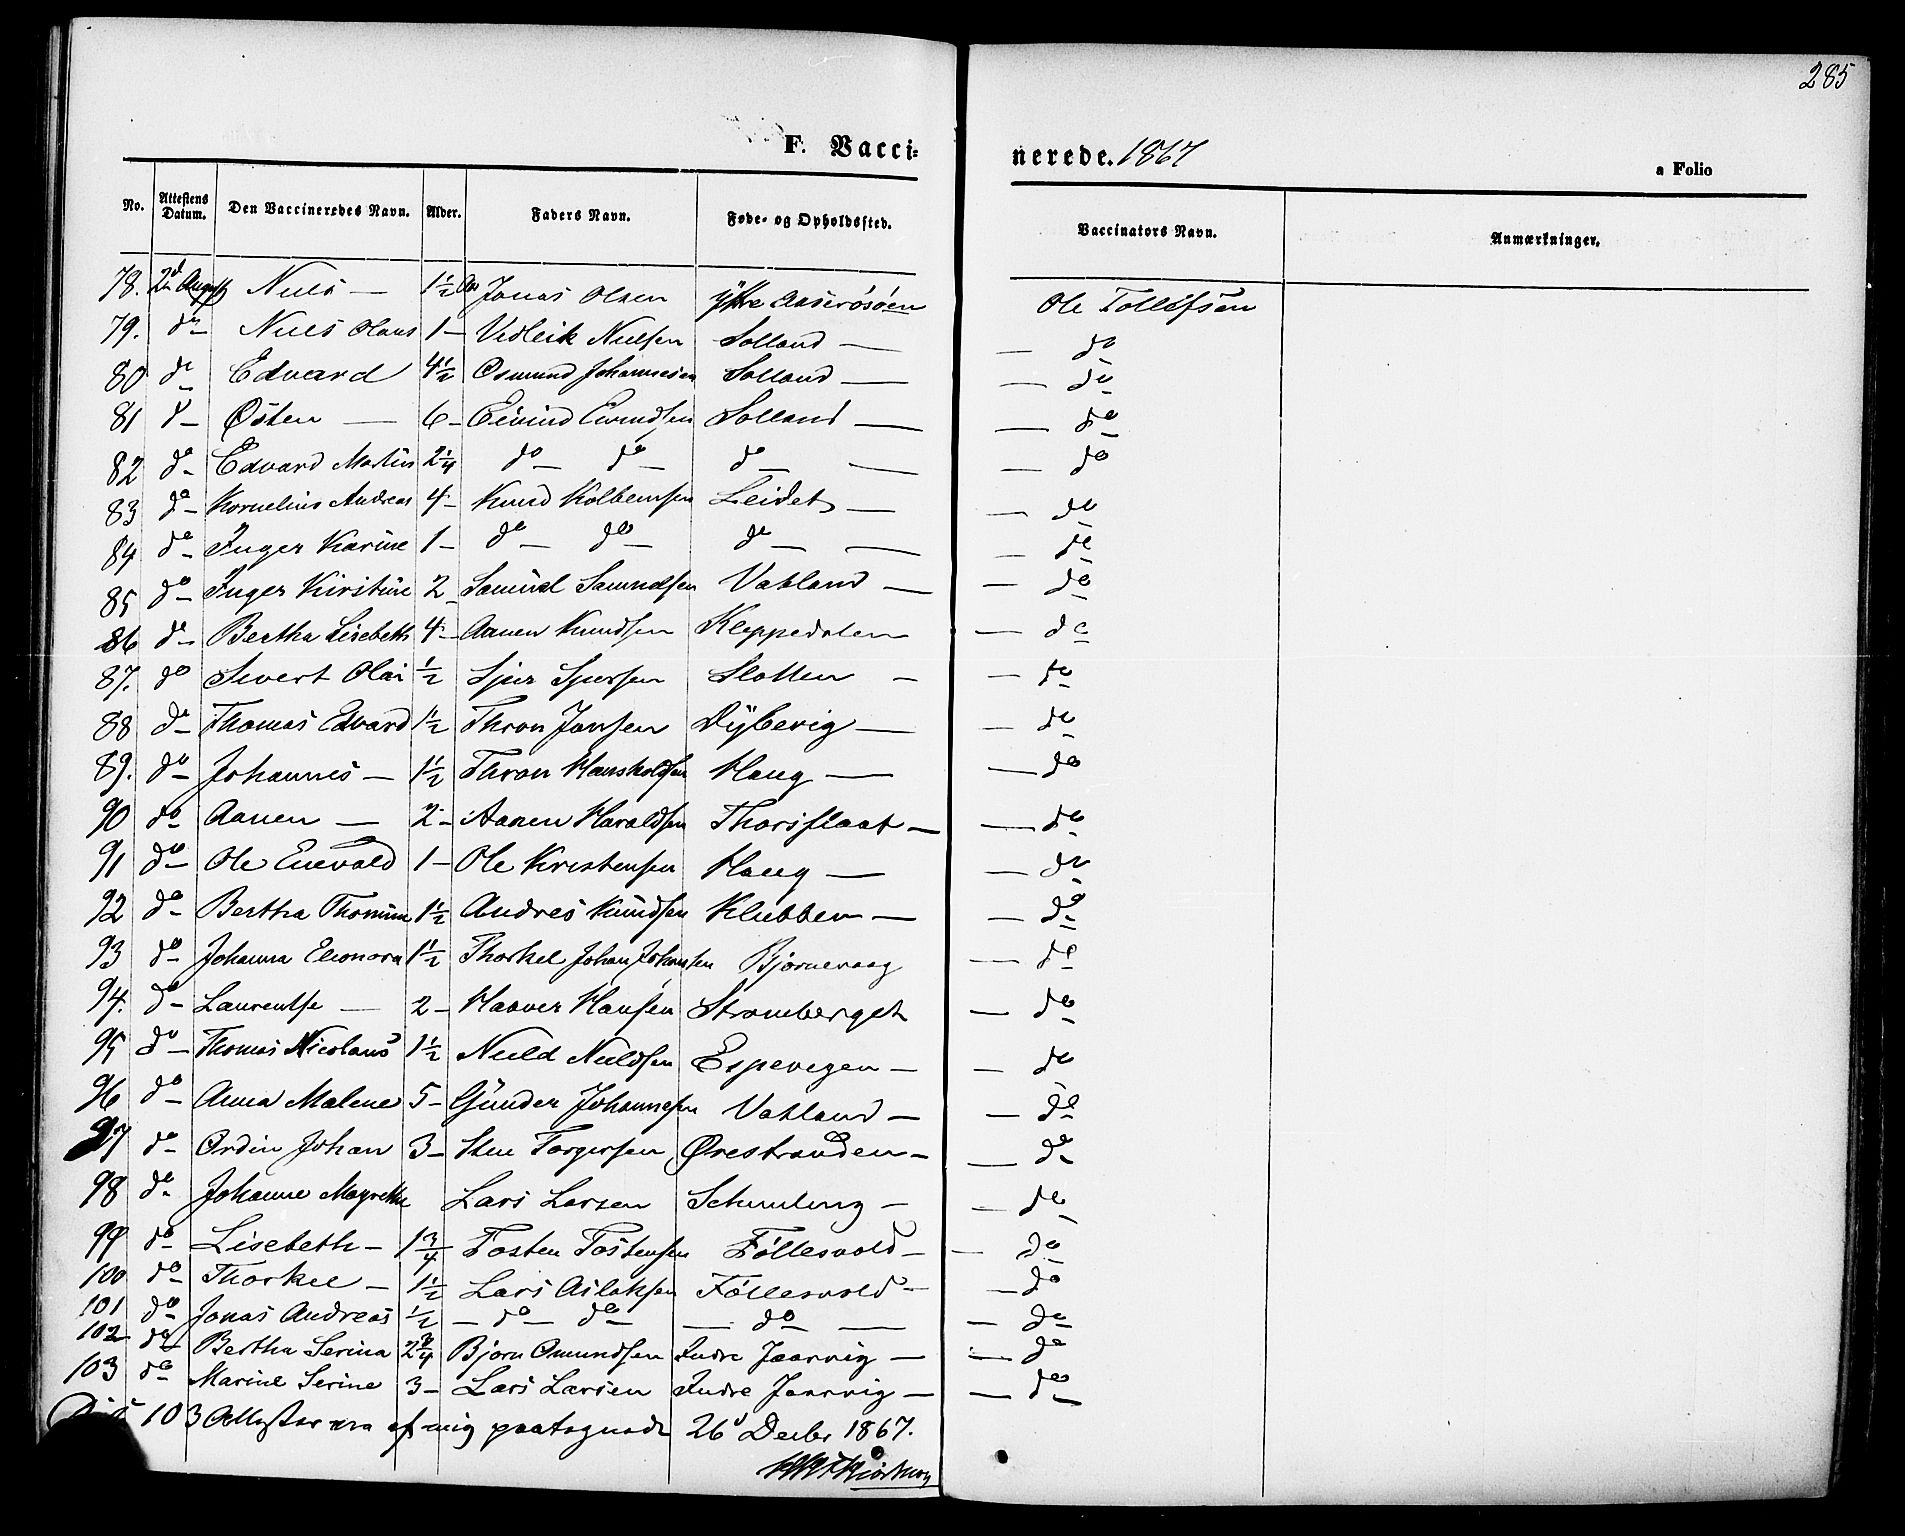 285
F. Vaccinerede. 1867
a Folio
No. Attestens Datum. Den Vaccineredes Navn. Alder. Faders Navn. Føde- og Opholdssted. Vaccinators Navn. Anmærkninger.
78. 2d August Niels — 1½ Aar Jonas Olsen Yttre Ole Tollefsen
79. do Niels Olaus 1 — Vedleik Nielsen Solland — — do
80 do Edvard 4½ Osmund Johannesen Solland — — do
81 do Østen — 6 — Eivind Eivindsen Solland — — do
82 do Edvard Martin 2¼ do do do — — do
83 do Kornelius Andreas 4 — Knud Kolbensen Leidet — — do
84 do Inger Karine 1 — do do do — — do
85 do Inger Kirstine 2 — Samuel Samuelsen Vatland — — do
86 do Bertha Lisebeth 4 — Aanen Knudsen Kleppedalen — do
87. do Sivert Olai ½ Sjur Sjursen Slotten — — do
88 do Thomas Edvard 1½ Thron Jansen Dybevig — — do
89. do Johannes — 1½ Thron Haug — — do
90 do Aanen — 2 — Aanen Haraldsen Thorsflaat — — do
91 do Ole Enevald 1 — Ole Kristensen Haug — — do
92 do Bertha Thomine 1½ Andres Knudsen Klubben — — do
93 do Johanna Eleonora 1½ Thorkel Johan Johansen Bjørnevaag — do
94. do Laurentse — 2 — Haaver Hansen Stromberget — do
95 do Thomas Nicolaus 1½ Neuld Neuldsen Espevegen — — do
96 do Anna Malene 5 — Gunder Johannesen Vatland — — do
97 do Ordin Johan 3 — Sten Torgersen Ørestranden — — do
98 do Johanne Magrethe Lars Larsen — — do
99 do Lisebeth — 1¾ Tosten Tostensen Föllesvold — — do
100 do Thorkel — 1½ Lars Aslaksen Föllesvold — — do
101 do Jonas Andreas ½ — do do — do — — do
102 do Bertha Serina 2¾ Bjørn Omundsen Indre Jaasvig — — do
103 do Marine Serine 3 — Lars Larsen Indre Jaasvig — — do
103 Attester era af mig paategnede 26d Decbr 1867.